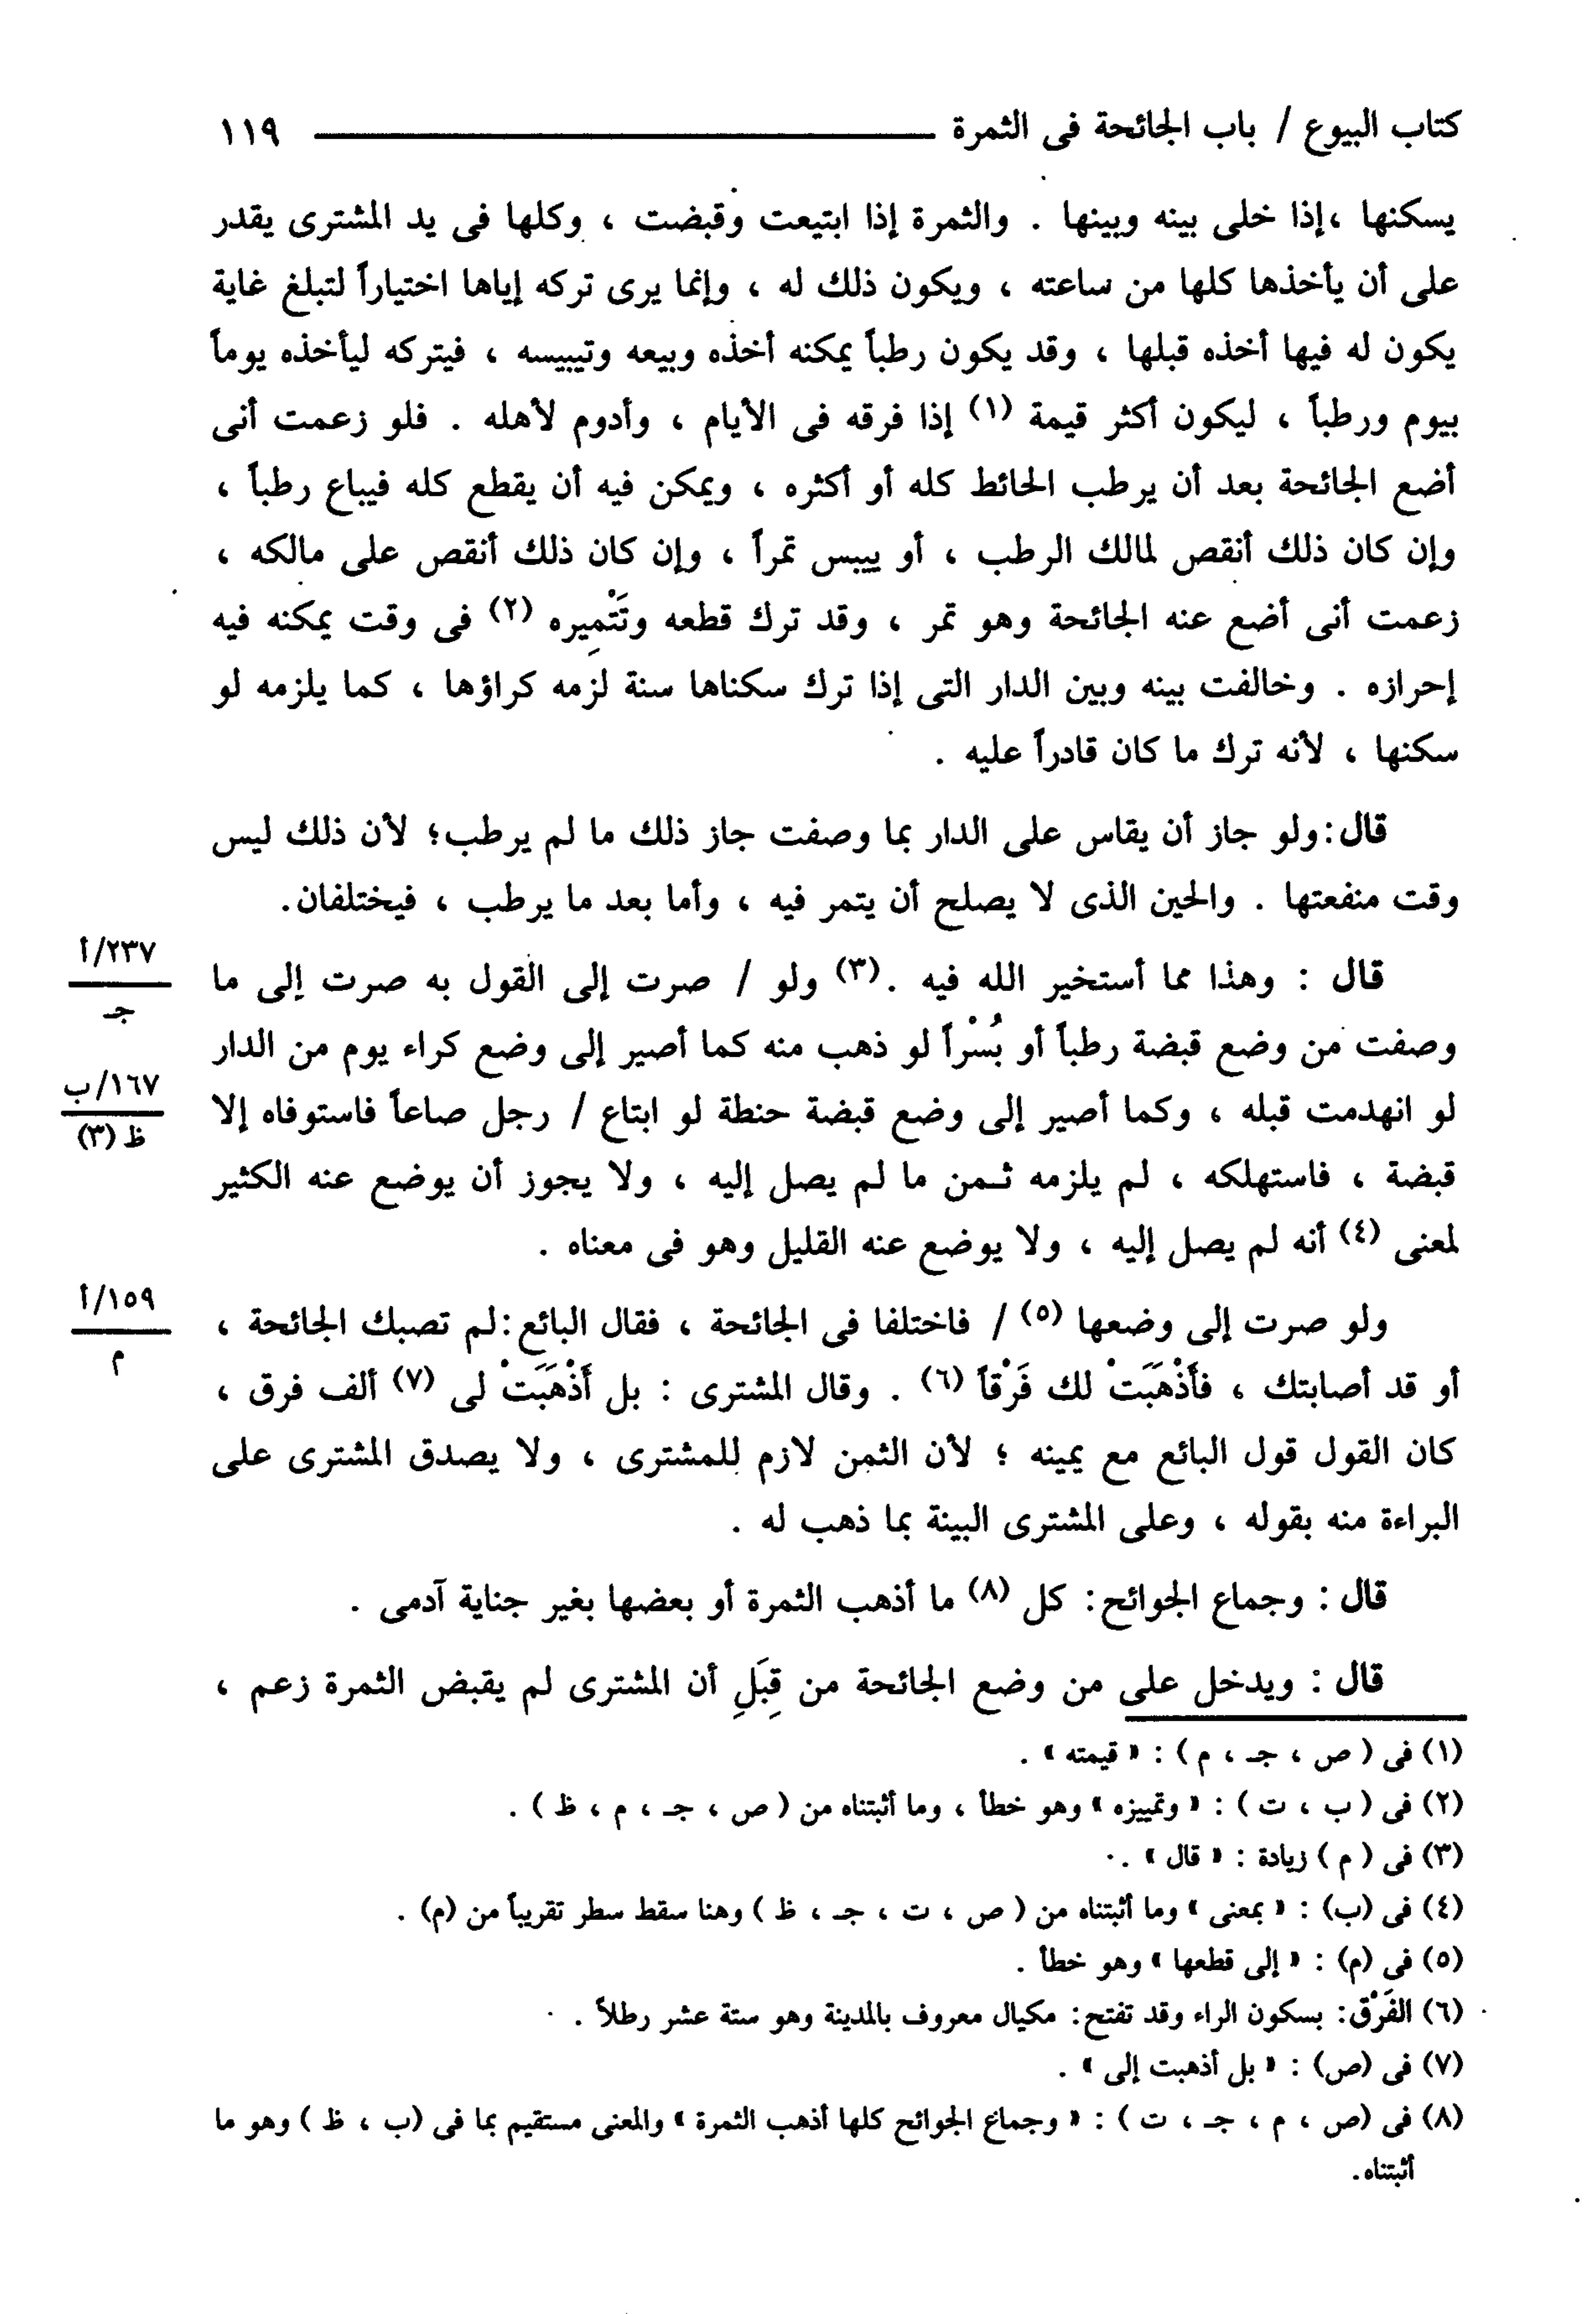 كتاب البيوع / باب الجائحة فى الثمرة ـــــــــــــــــ ١١٩
يسكنها ،إذا خلى بينه وبينها . والثمرة إذا ابتيعت وقبضت ، وكلها فى يد المشترى يقدر
على أن يأخذها كلها من ساعته ، ويكون ذلك له ، وإنما يرى تركه إياها اختياراً لتبلغ غاية
يكون له فيها أخذه قبلها ، وقد يكون رطباً يمكنه أخذه وبيعه وتيبيسه ، فيتركه ليأخذه يوماً
بيوم ورطباً ، ليكون أكثر قيمة (١) إذا فرقه فى الأيام ، وأدوم لأهله . فلو زعمت أنى
أضع الجائحة بعد أن يرطب الحائط كله أو أكثره ، ويمكن فيه أن يقطع كله فيباع رطباً ،
وإن كان ذلك أنقص لمالك الرطب ، أو ييبس تمراً ، وإن كان ذلك أنقص على مالكه ،
زعمت أنى أضع عنه الجائحة وهو تمر ، وقد ترك قطعه وتَتْمِيره (٢) فى وقت يمكنه فيه
إحرازه . وخالفت بينه وبين الدار التى إذا ترك سكناها سنة لزمه كراؤها ، كما يلزمه لو
سكنها ، لأنه ترك ما كان قادراً عليه .
قال :ولو جاز أن يقاس على الدار بما وصفت جاز ذلك ما لم يرطب؛ لأن ذلك ليس
وقت منفعتها . والحين الذى لا يصلح أن يتمر فيه ، وأما بعد ما يرطب ، فيختلفان.
قال : وهذا مما أستخير الله فيه .(٣) ولو / صرت إلى القول به صرت إلى ما
٢٣٧/أ
جـ
وصفت من وضع قبضة رطباً أو بُسْراً لو ذهب منه كما أصير إلى وضع كراء يوم من الدار
لو انهدمت قبله ، وكما أصير إلى وضع قبضة حنطة لو ابتاع / رجل صاعاً فاستوفاه إلا
١٦٧/ب
ظ (٣)
قبضة ، فاستهلكه ، لم يلزمه ثـمن ما لم يصل إليه ، ولا يجوز أن يوضع عنه الكثير
لمعنى (٤) أنه لم يصل إليه ، ولا يوضع عنه القليل وهو فى معناه .
ولو صرت إلى وضعها (٥) / فاختلفا فى الجائحة ، فقال البائع :لم تصبك الجائحة ،
١٥٩/أ
م
أو قد أصابتك ، فأَذْهَبَتْ لك فَرْقاً (٦) . وقال المشترى : بل أَذْهَبَتْ لى (٧) ألف فرق ،
كان القول قول البائع مع يمينه ؛ لأن الثمن لازم للمشترى ، ولا يصدق المشترى على
البراءة منه بقوله ، وعلى المشترى البينة بما ذهب له .
قال : وجماع الجوائح: كل (٨) ما أذهب الثمرة أو بعضها بغير جناية آدمى .
قال : ويدخل على من وضع الجائحة من قِبَلِ أن المشترى لم يقبض الثمرة زعم ،
(١) فى ( ص ، جـ ، م ) : « قيمته » .
(٢) فى ( ب ، ت ) : « وتمييزه » وهو خطأ ، وما أثبتناه من ( ص ، جـ ، م ، ظ ) .
(٣) فى ( م ) زيادة : « قال » .
(٤) فى (ب) : « بمعنى » وما أثبتناه من ( ص ، ت ، جـ ، ظ ) وهنا سقط سطر تقريباً من (م) .
(٥) فى (م) : « إلى قطعها » وهو خطأ .
(٦) الفَرْق: بسكون الراء وقد تفتح: مكيال معروف بالمدينة وهو ستة عشر رطلاً .
(٧) فى (ص) : « بل أذهبت إلى » .
(٨) فى (ص ، م ، جـ ، ت ) : « وجماع الجوائح كلها أذهب الثمرة » والمعنى مستقيم بما فى (ب ، ظ ) وهو ما
أثبتناه.